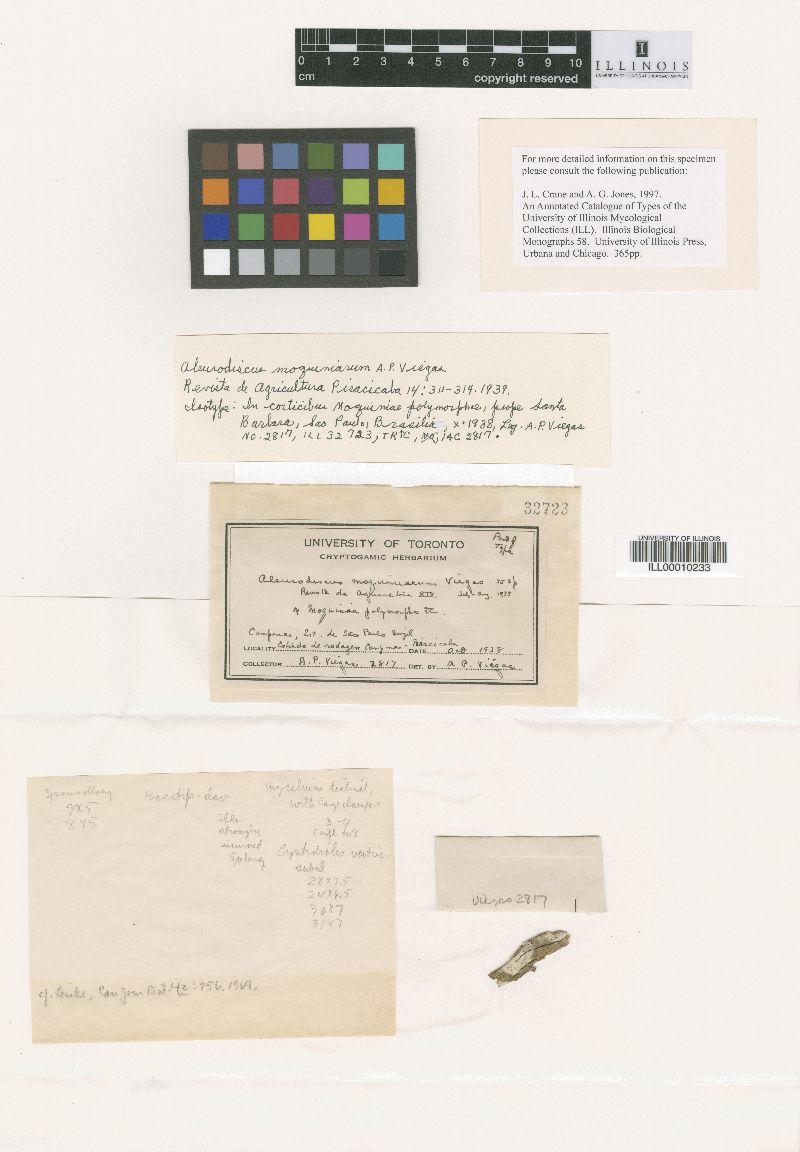 0 1 2 3 4 5 6 7 8 9 10
cm
copyright reserved
I
ILLINOIS
UNIVERSITY OF ILLINOIS AT URBANA-CHAMPAIGN
For more detailed information on this specimen
please consult the following publication:
J. L. Crane and A. G. Jones, 1997.
An Annotated Catalogue of Types of the
University of Illinois Mycological
Collections (ILL). Illinois Biological
Monographs 58. University of Illinois Press,
Urbana and Chicago. 365pp.
Aleurodiscus moquiniarum A.P. Viégas
Revista de Agricultura Piracicaba 14: 311-314. 1939.
Isotype: In corticibus Moquiniae polymorphae, prope Santa
Barbara, Sao Paulo, Brasilia, X. 1938, Leg. A.P. Viegas
No. 2817, ILL 32723, TRTC, IAC 2817.
32723
UNIVERSITY OF TORONTO
CRYPTOGAMIC HERBARIUM
Part of
Type
Aleurodiscus moquiniarum Viegas n. sp
Revista de Agricultura July-Aug. 1939
Moquinia polymorpha
Campinas, Est. de São Paulo Brazil
LOCALITY Estrada de rodagem Campinas-Piracicaba DATE Oct 1938
COLLECTOR A. P. Viegas 2817 DET. BY A. P. Viégas
UNIVERSITY OF ILLINOIS
ILL00010233
9x5
8x5
Mycelium distinct,
with large clamps
3-4
strongly
incurved
Cystidioles ventric
28x7.5
30x7
31x7
Viegas 2817
cf. Lemke, Can Jour Bot. 42: 256. 1964.